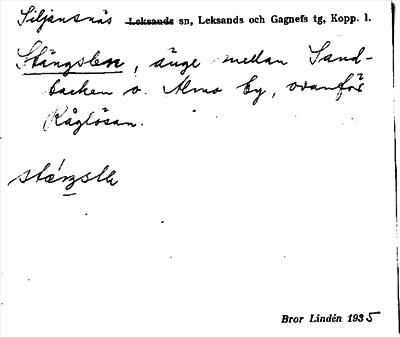 Siljansnäs Leksands sn, Leksands och Gagnefs tg, Kopp. l.
Stängslen, änge mellan Sand-
backen o. Almo by, ovanför
Råglösan.
Bror Lindén 1935